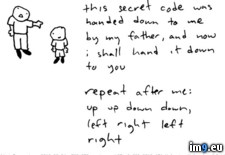 this secret code was
handed down to me
by my father, and now
i shall hand it down
to you
repeat after me:
up up down down,
left right left
right
img9.eu